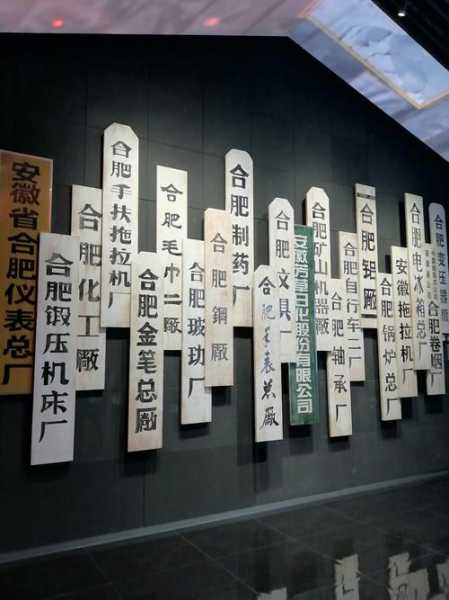 安徽省合肥仪表总厂
合肥锻压机床厂
合肥化工厰
合肥手扶拖拉机厂
合肥金笔总厰
合肥毛巾二厰
合肥玻璃厂
合肥鋼厰
合肥制药厂
合肥手表总厰
合肥文具厂
安徽芳草日化股份有限公司
合肥矿山机器厰
合肥轴承厂
合肥自行车二厂
合肥钥厰
合肥锅炉总厂
安徽拖拉机厂
合肥电冰箱总厂
合肥卷烟厂
合肥变压器